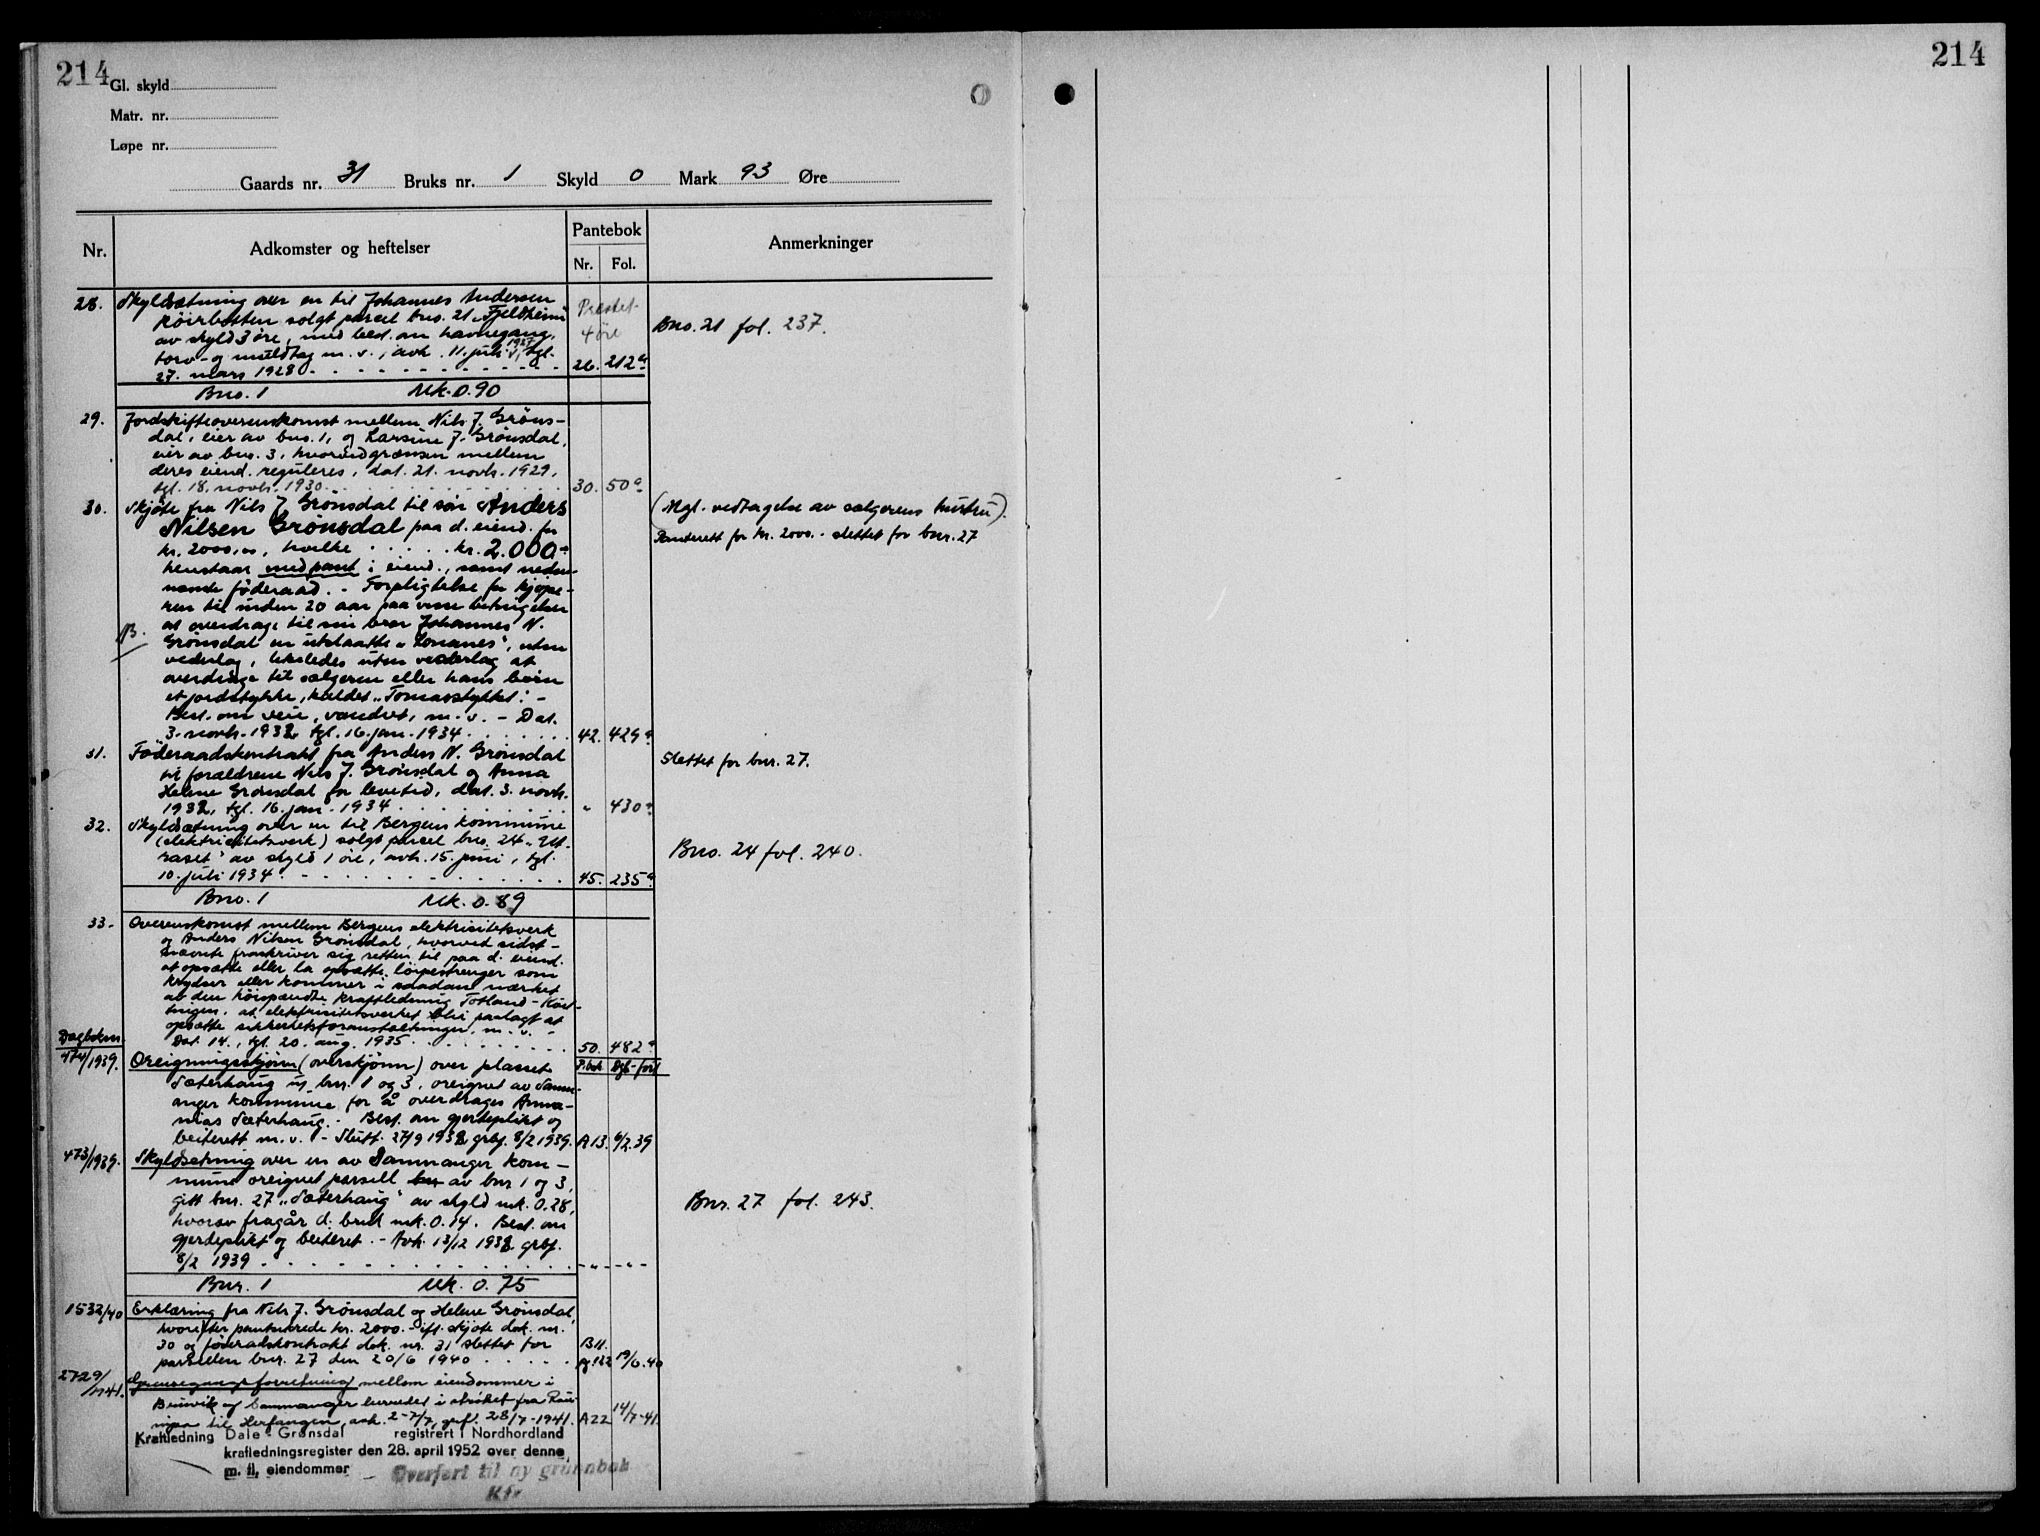 214
214
Gl. skyld
Matr. nr.
Løpe nr.
Gaards nr. 31 Bruks nr. 1 Skyld 0 Mark 93 Øre
Nr. Adkomster og heftelser Pantebok Anmerkninger
Nr. Fol.
28. Skyldsætning over en til Johannes Andersen
solgt parcel bno. 21 "Fjeldheim"
av skyld 3 øre, med best. om havnegang,
torv- og muldtag m. v., avh. 11. juli 1927, tgl.
27. mars 1928 26. 212a
4 øre
Bno. 21 fol. 237.
Bno. 1 Mk. 0.90
29. Jordskifteoverenskomst mellem Nils J. Grøns-
dal, eier av bno. 1, og Larsine J. Grønsdal,
eier av bno. 3, hvorved grænsen mellem
deres eiend. reguleres, dat. 21. novb. 1929,
tgl. 18. novb. 1930 30. 50a
30. Skjøte fra Nils J. Grønsdal til søn Anders
Nilsen Grønsdal paa d. eiend. for
kr. 2000,00, hvilke kr. 2.000,-
henstaar med pant i eiend., samt neden-
nævnte føderaad. - Forpligtelse for kjøpe-
ren til inden 20 aar paa visse betingelser
at overdrage til sin bror Johannes N.
Grønsdal en utslaatte "Lonanes", uten
vederlag, likeledes uten vederlag at
overdrage til sælgeren eller hans børn
et jordstykke, kaldet "Tomasstykket". -
Best. om veie, vandret, m. v. - Dat.
3. novb. 1932, tgl. 16. jan. 1934 42. 429a
(Mgl. vedtagelse av sælgerens hustru).
Panterett for kr. 2000.- slettet for bnr. 27
31. Føderaadskontrakt fra Anders N. Grønsdal
til forældrene Nils J. Grønsdal og Anna
Helene Grønsdal for levetid, dat. 3. novb.
1932, tgl. 16. jan. 1934 " 430a
Slettet for bnr. 27.
32. Skyldsætning over en til Bergens kommune
(elektricitetsverk) solgt parcel bno. 24 "Ut-
raset" av skyld 1 øre, avh. 15. juni, tgl.
10. juli 1934 45. 235a
Bno. 24 fol. 240.
Bno. 1 Mk. 0.89
33. Overenskomst mellem Bergens elektrisitetsverk
og Anders Nilsen Grønsdal, hvorved sidst-
nævnte fraskriver sig retten til paa d. eiend.
at opsætte eller la opsætte løipestrenger som
krydser eller kommer i saadan nærhet
av den høispændte kraftledning Totland -
at elektrisitetsverket blir paalagt at
opsætte sikkerhetsforanstaltninger, m. v. -
Dat. 14., tgl. 20. aug. 1935 50. 482a
Dagboknr.
474/1939. Oreigningsskjønn (overskjønn) over plassen P.bok Dgl-ført
Sæterhaug u/ bnr. 1 og 3, oreignet av Samn-
anger kommune for å overdrages Anna-
nias Sæterhaug. - Best. om gjerdeplikt og
beiterett m. v. - Slutt. 27/9 1938, grbf. 8/2 1939. A13. 6/2.39
473/1939. Skyldsetning over en av Samnanger kom-
mune oreignet parsell av bnr 1 og 3,
gitt bnr. 27 "Sæterhaug" av skyld mk. 0.28,
hvorav fragår d. bruk mk. 0.14. Best. om
gjerdeplikt og beiteret. - Avh. 13/12 1938, grbf.
8/2 1939 - " - - " -
Bnr. 27 fol. 243.
Bnr. 1 Mk. 0.75
1532/40 Erklæring fra Nils J. Grønsdal og Helene Grønsdal,
hvoretter pantukrede kr. 2000.- ifl. skjøte dok. nr.
30 og føderadskontrakt dok. nr. 31 slettet for B11.
parsellen bnr. 27 den 20/6 1940 pg 122 19/6.40
2729/1941. Grensegangsforretning mellom eiendommer i
og Samnanger herreder i strøket fra
til Herfangen, avh. 2-7/7, grfl. 28/7-1941. A22 14/7-41
Kraftledning Dale - Grønsdal registrert i Nordhordland
kraftledningsregister den 28. april 1952 over denne
m. fl. eiendommer
Overført til ny grunnbok